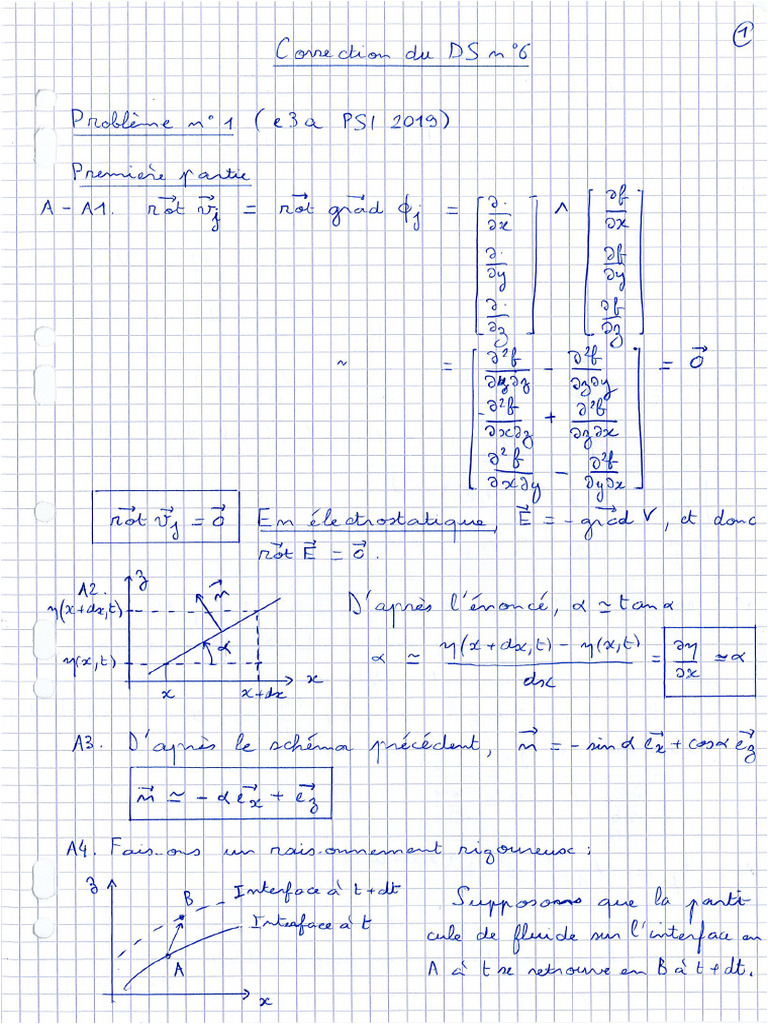 1
Correction du DS n°6
Problème n°1 (e3a PSI 2019)
Première partie
A - A1. rot⃗ v⃗_j = rot⃗ grad⃗ ϕ_j = [∂·/∂x ; ∂·/∂y ; ∂·/∂z] ∧ [∂f/∂x ; ∂f/∂y ; ∂f/∂z]
~ = [∂²f/∂y∂z - ∂²f/∂z∂y ; -∂²f/∂x∂z + ∂²f/∂z∂x ; ∂²f/∂x∂y - ∂²f/∂y∂x] = 0⃗
rot⃗ v⃗_j = 0⃗ En électrostatique, E⃗ = - grad⃗ V, et donc
rot⃗ E⃗ = 0⃗.
A2. z n⃗
η(x+dx,t)
η(x,t) α
x x+dx x
D'après l'énoncé, α ≃ tan α
α ≃ (η(x+dx,t) - η(x,t))/dx = ∂η/∂x ≃ α
A3. D'après le schéma précédent, n⃗ = - sin α e⃗x + cos α e⃗z
n⃗ ≃ - α e⃗x + e⃗z
A4. Faisons un raisonnement rigoureux :
z B Interface à t+dt
Interface à t
A
x
Supposons que la parti
cule de fluide sur l'interface en
A à t se retrouve en B à t+dt.